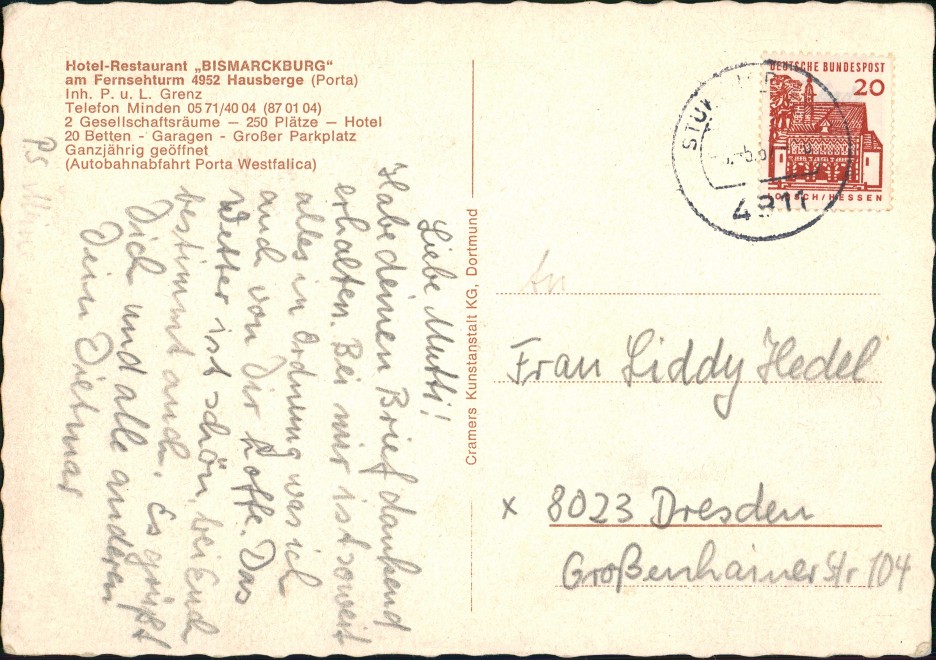 Hotel-Restaurant „BISMARCKBURG“
am Fernsehturm 4952 Hausberge (Porta)
Inh. P. u. L. Grenz
Telefon Minden 05 71/40 04 (87 01 04)
2 Gesellschaftsräume — 250 Plätze — Hotel
20 Betten - Garagen - Großer Parkplatz
Ganzjährig geöffnet
(Autobahnabfahrt Porta Westfalica)
Liebe Mutti!
Habe deinen Brief dankend
erhalten. Bei mir ist soweit
alles in Ordnung was ich
auch von Dir hoffe. Das
Wetter ist schön, bei Euch
bestimmt auch. Es grüßt
Dich und alle anderen
Dein Dietmar
PS
Cramers Kunstanstalt KG, Dortmund
DEUTSCHE BUNDESPOST
20
LORSCH/HESSEN
4911
An
Frau Liddy Hedel
x 8023 Dresden
Großenhainer Str 104